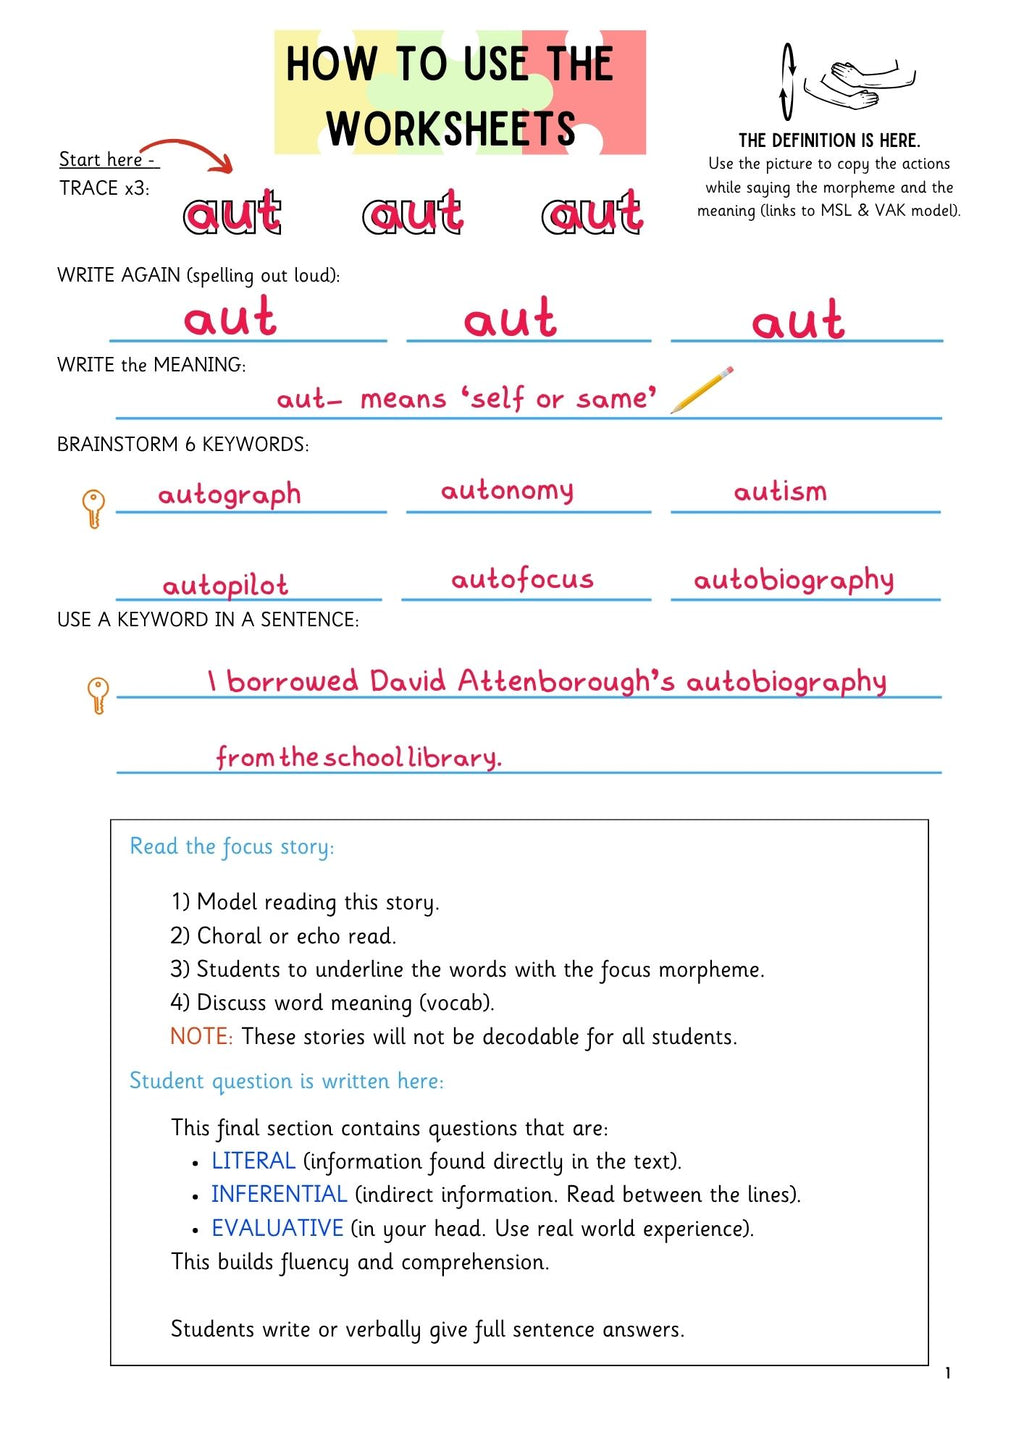 HOW TO USE THE
WORKSHEETS
THE DEFINITION IS HERE.
Use the picture to copy the actions
while saying the morpheme and the
meaning (links to MSL & VAK model).
Start here -
TRACE x3:
aut aut aut
WRITE AGAIN (spelling out loud):
aut aut aut
WRITE the MEANING:
aut- means ‘self or same’
BRAINSTORM 6 KEYWORDS:
autograph autonomy autism
autopilot autofocus autobiography
USE A KEYWORD IN A SENTENCE:
I borrowed David Attenborough’s autobiography
from the school library.
Read the focus story:
1) Model reading this story.
2) Choral or echo read.
3) Students to underline the words with the focus morpheme.
4) Discuss word meaning (vocab).
NOTE: These stories will not be decodable for all students.
Student question is written here:
This final section contains questions that are:
• LITERAL (information found directly in the text).
• INFERENTIAL (indirect information. Read between the lines).
• EVALUATIVE (in your head. Use real world experience).
This builds fluency and comprehension.
Students write or verbally give full sentence answers.
1